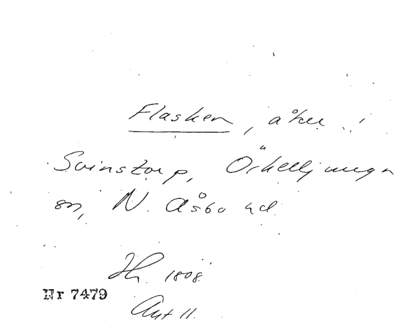 Flasken, åker i
Svinstorp, Örkelljunga
sn, N. Åsbo hd
Hr. 1808.
Nr 7479
Akt 11.